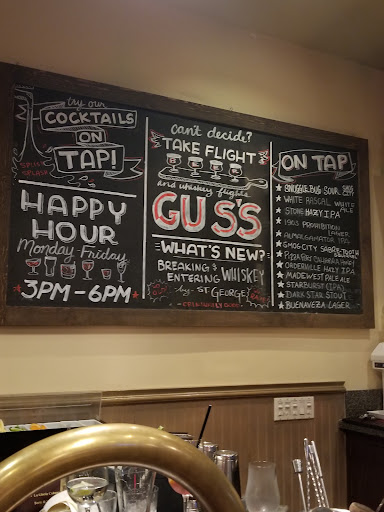 try our
COCKTAILS
ON
TAP!
SPLISH
SPLASH
HAPPY
HOUR
Monday-Friday
3PM-6PM
can't decide?
TAKE FLIGHT
and whiskey flights
GUS'S
WHAT'S NEW?
BREAKING &
ENTERING WHISKEY
by ST GEORGE
ON TAP
SNUGGLEBUG SOUR
WHITE RASCAL WHITE ALE
STONE HAZY IPA
1903 PROHIBITION LAGER
ALMALGAMATOR IPA
SMOG CITY SABRE-TOOTH
PIZZA PORT
ORDERVILLE HAZY IPA
MADEWEST PALE ALE
STARBURST (IPA)
DARK STAR STOUT
BUENAVEZA LAGER